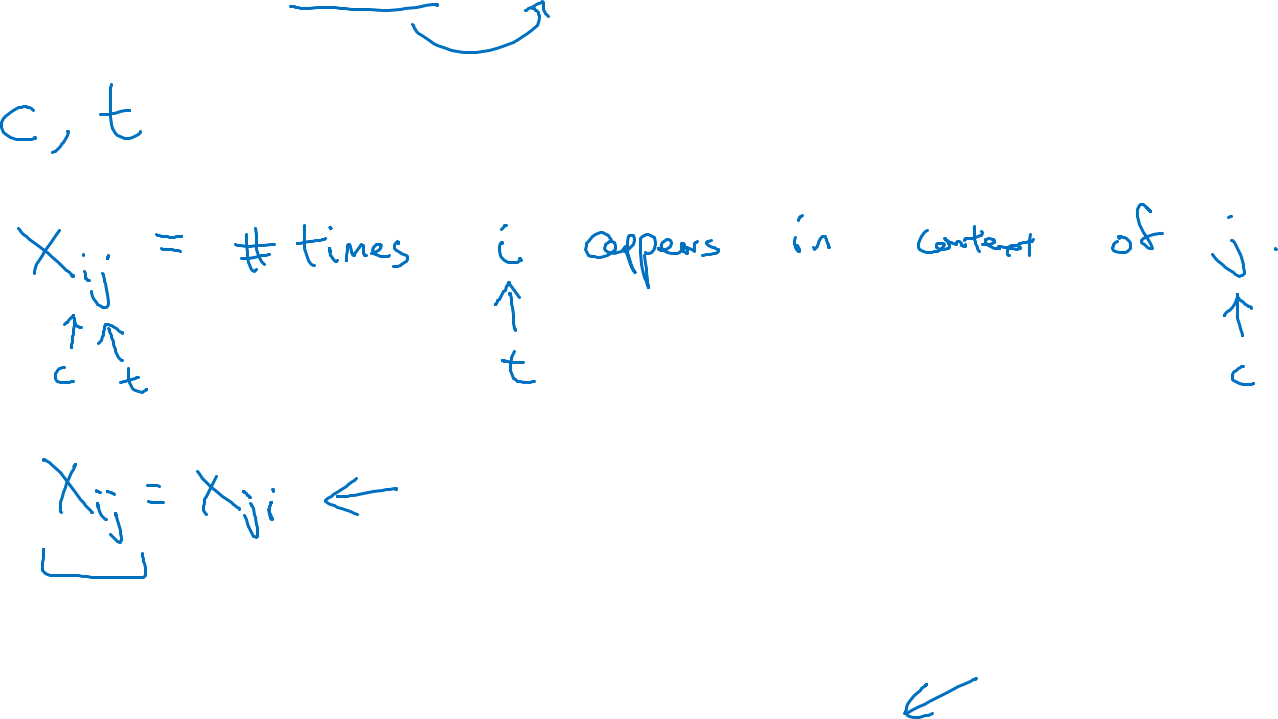 c, t
Xij = # times i appears in context of j.
c t t c
Xij = Xji